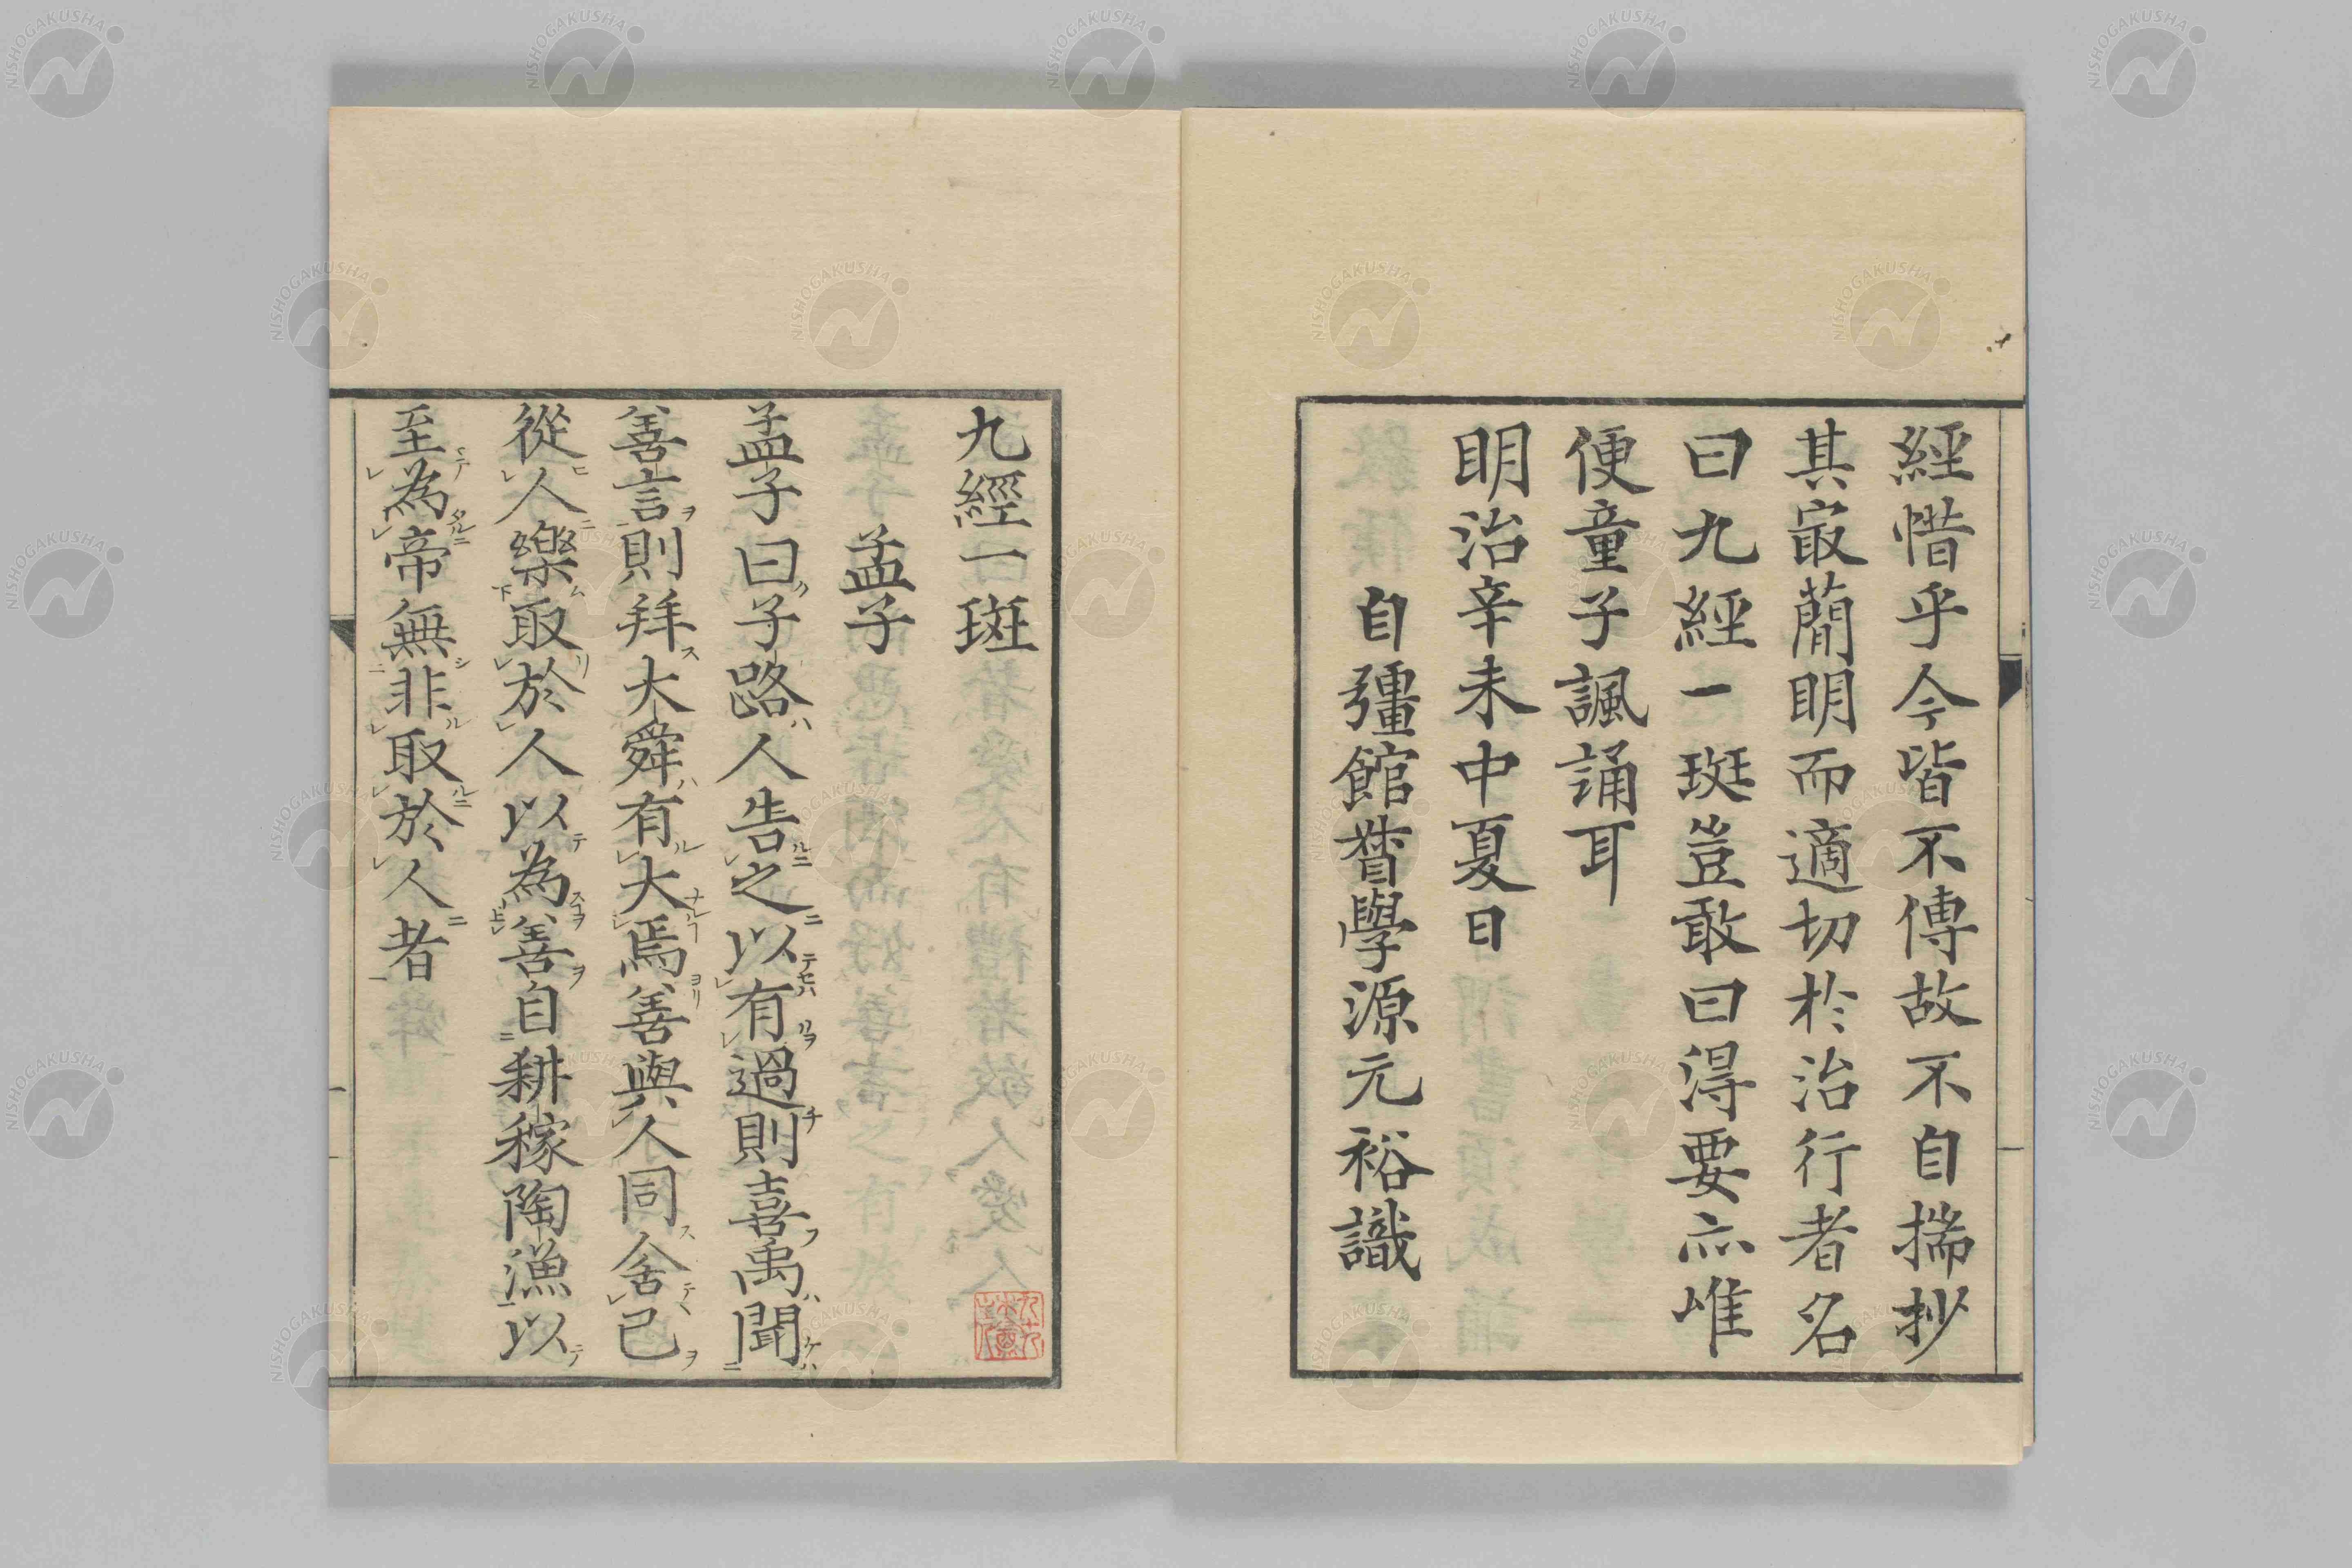 經惜乎今皆不傳故不自揣抄
其㝡蕳明而適切於治行者名
曰九經一斑豈敢曰得要亦唯
便童子諷誦耳
明治辛未中夏日
自彊館督學源元裕識
九經一斑
孟子
孟子曰子路人告之以有過則喜禹聞
善言則拜大舜有大焉善與人同舍己
從人樂取於人以為善自耕稼陶漁以
至為帝無非取於人者
NISHOGAKUSHA